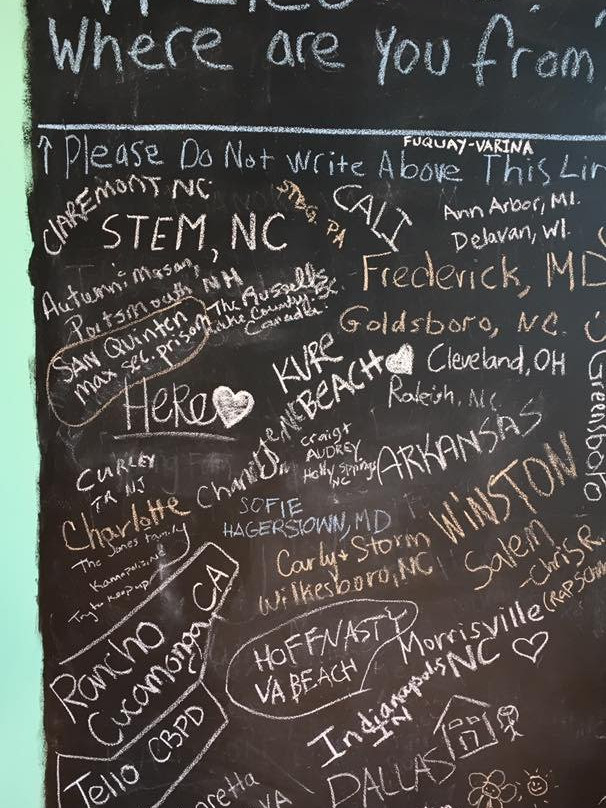 Where are You from
FUQUAY-VARINA
↑ Please Do Not Write Above This Lin
CLAREMONT NC
STBG, PA
CALI
Ann Arbor, MI.
Delavan, WI.
STEM, NC
Autumn & Mason,
Portsmouth NH
The Russells
Lake County
Frederick, MD
Goldsboro, NC.
SAN Quinten
max sec. prison
KURE
BEACH
NC
Cleveland, OH
Raleigh, NC
HERE
Greensboro
Craig +
AUDREY
Holly Springs
NC
ARKANSAS
CURLEY
TR NJ
Charlotte
SOFIE
HAGERSTOWN, MD
WINSTON
Salem
-Chris R.
The Jones family
Kannapolis, NC
Carly + Storm
Wilkesboro, NC
Rancho
Cucamonga CA
HOFFNASTY
VA BEACH
Morrisville
NC
Indianapolis
IN
Tello CBPD
DALLAS
VA